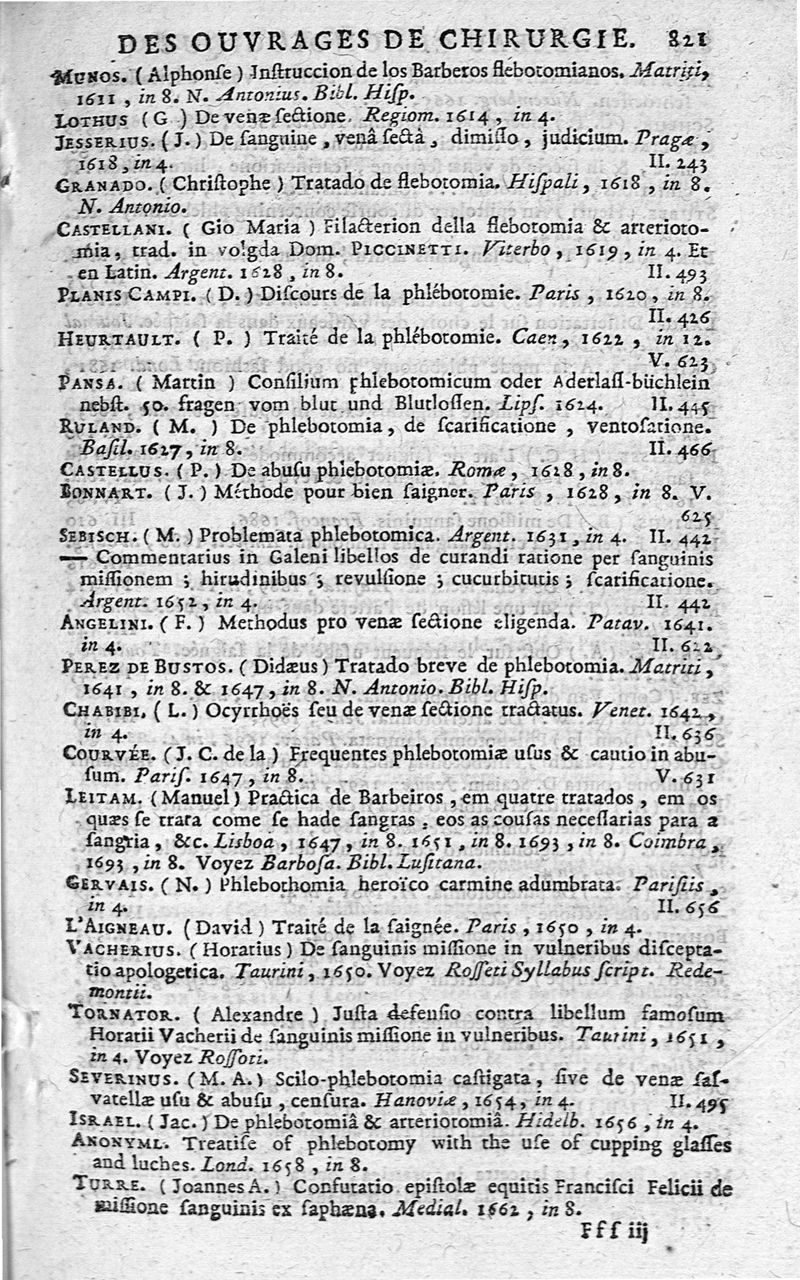 DES OUVRAGES DE CHIRURGIE. 821
MUNOS. (Alphonſe) Inſtruccion de los Barberos flebotomianos. Matriti,
1611, in 8. N. Antonius. Bibl. Hiſp.
LOTHUS (G) De venæ ſectione. Regiom. 1614, in 4.
JESSERIUS. (J.) De ſanguine, venâ ſectâ, dimiſſo, judicium. Pragæ,
1618, in 4. II. 243
GRANADO. (Chriſtophe) Tratado de flebotomia. Hiſpali, 1618, in 8.
N. Antonio.
CASTELLANI. (Gio Maria) Filacterion della flebotomia & arterioto-
mia, trad. in volgda Dom. PICCINETTI. Viterbo, 1619, in 4. Et
en Latin. Argent. 1628, in 8. II. 493
PLANIS CAMPI. (D.) Diſcours de la phlébotomie. Paris, 1620, in 8.
II. 426
HEURTAULT. (P.) Traité de la phlébotomie. Caen, 1622, in 12.
V. 623
PANSA. (Martin) Conſilium phlebotomicum oder Aderlaſſ-büchlein
nebſt. 50. fragen vom blut und Blutloſſen. Lipſ. 1624. II. 445
RULAND. (M.) De phlebotomia, de ſcarificatione, ventoſatione.
Baſil. 1627, in 8. II. 466
CASTELLUS. (P.) De abuſu phlebotomiæ. Romæ, 1628, in 8.
BONNART. (J.) Méthode pour bien ſaigner. Paris, 1628, in 8. V.
625
SEBISCH. (M.) Problemata phlebotomica. Argent. 1631, in 4. II. 442
— Commentarius in Galeni libellos de curandi ratione per ſanguinis
miſſionem; hirudinibus; revulſione; cucurbitutis; ſcarificatione.
Argent. 1652, in 4. II. 442
ANGELINI. (F.) Methodus pro venæ ſectione eligenda. Patav. 1641.
in 4. II. 622
PEREZ DE BUSTOS. (Didæus) Tratado breve de phlebotomia. Matriti,
1641, in 8. & 1647, in 8. N. Antonio. Bibl. Hiſp.
CHABIBI, (L.) Ocyrrhoës ſeu de venæ ſectione tractatus. Venet. 1642,
in 4. II. 636
COURVÉE. (J. C. de la) Frequentes phlebotomiæ uſus & cautio in abu-
ſum. Pariſ. 1647, in 8. V. 631
LEITAM. (Manuel) Practica de Barbeiros, em quatre tratados, em os
quæs ſe trata come ſe hade ſangras, eos as couſas neceſſarias para a
ſangria, &c. Lisboa, 1647, in 8. 1651, in 8. 1693, in 8. Coimbra,
1693, in 8. Voyez Barboſa. Bibl. Luſitana.
GERVAIS. (N.) Phlebothomia heroïco carmine adumbrata. Pariſiis,
in 4. II. 656
L'AIGNEAU. (David) Traité de la ſaignée. Paris, 1650, in 4.
VACHERIUS. (Horatius) De ſanguinis miſſione in vulneribus diſcepta-
tio apologetica. Taurini, 1650. Voyez Roſſeti Syllabus ſcript. Rede-
montii.
TORNATOR. (Alexandre) Juſta defenſio contra libellum famoſum
Horatii Vacherii de ſanguinis miſſione in vulneribus. Taurini, 1651,
in 4. Voyez Roſſoti.
SEVERINUS. (M. A.) Scilo-phlebotomia caſtigata, ſive de venæ ſal-
vatellæ uſu & abuſu, cenſura. Hanoviæ, 1654, in 4. II. 495
ISRAEL. (Jac.) De phlebotomiâ & arteriotomiâ. Hidelb. 1656, in 4.
ANONYML. Treatiſe of phlebotomy with the uſe of cupping glaſſes
and luches. Lond. 1658, in 8.
TURRE. (Joannes A.) Confutatio epiſtolæ equitis Franciſci Felicii de
miſſione ſanguinis ex ſaphæna. Medial. 1662, in 8.
Fff iij